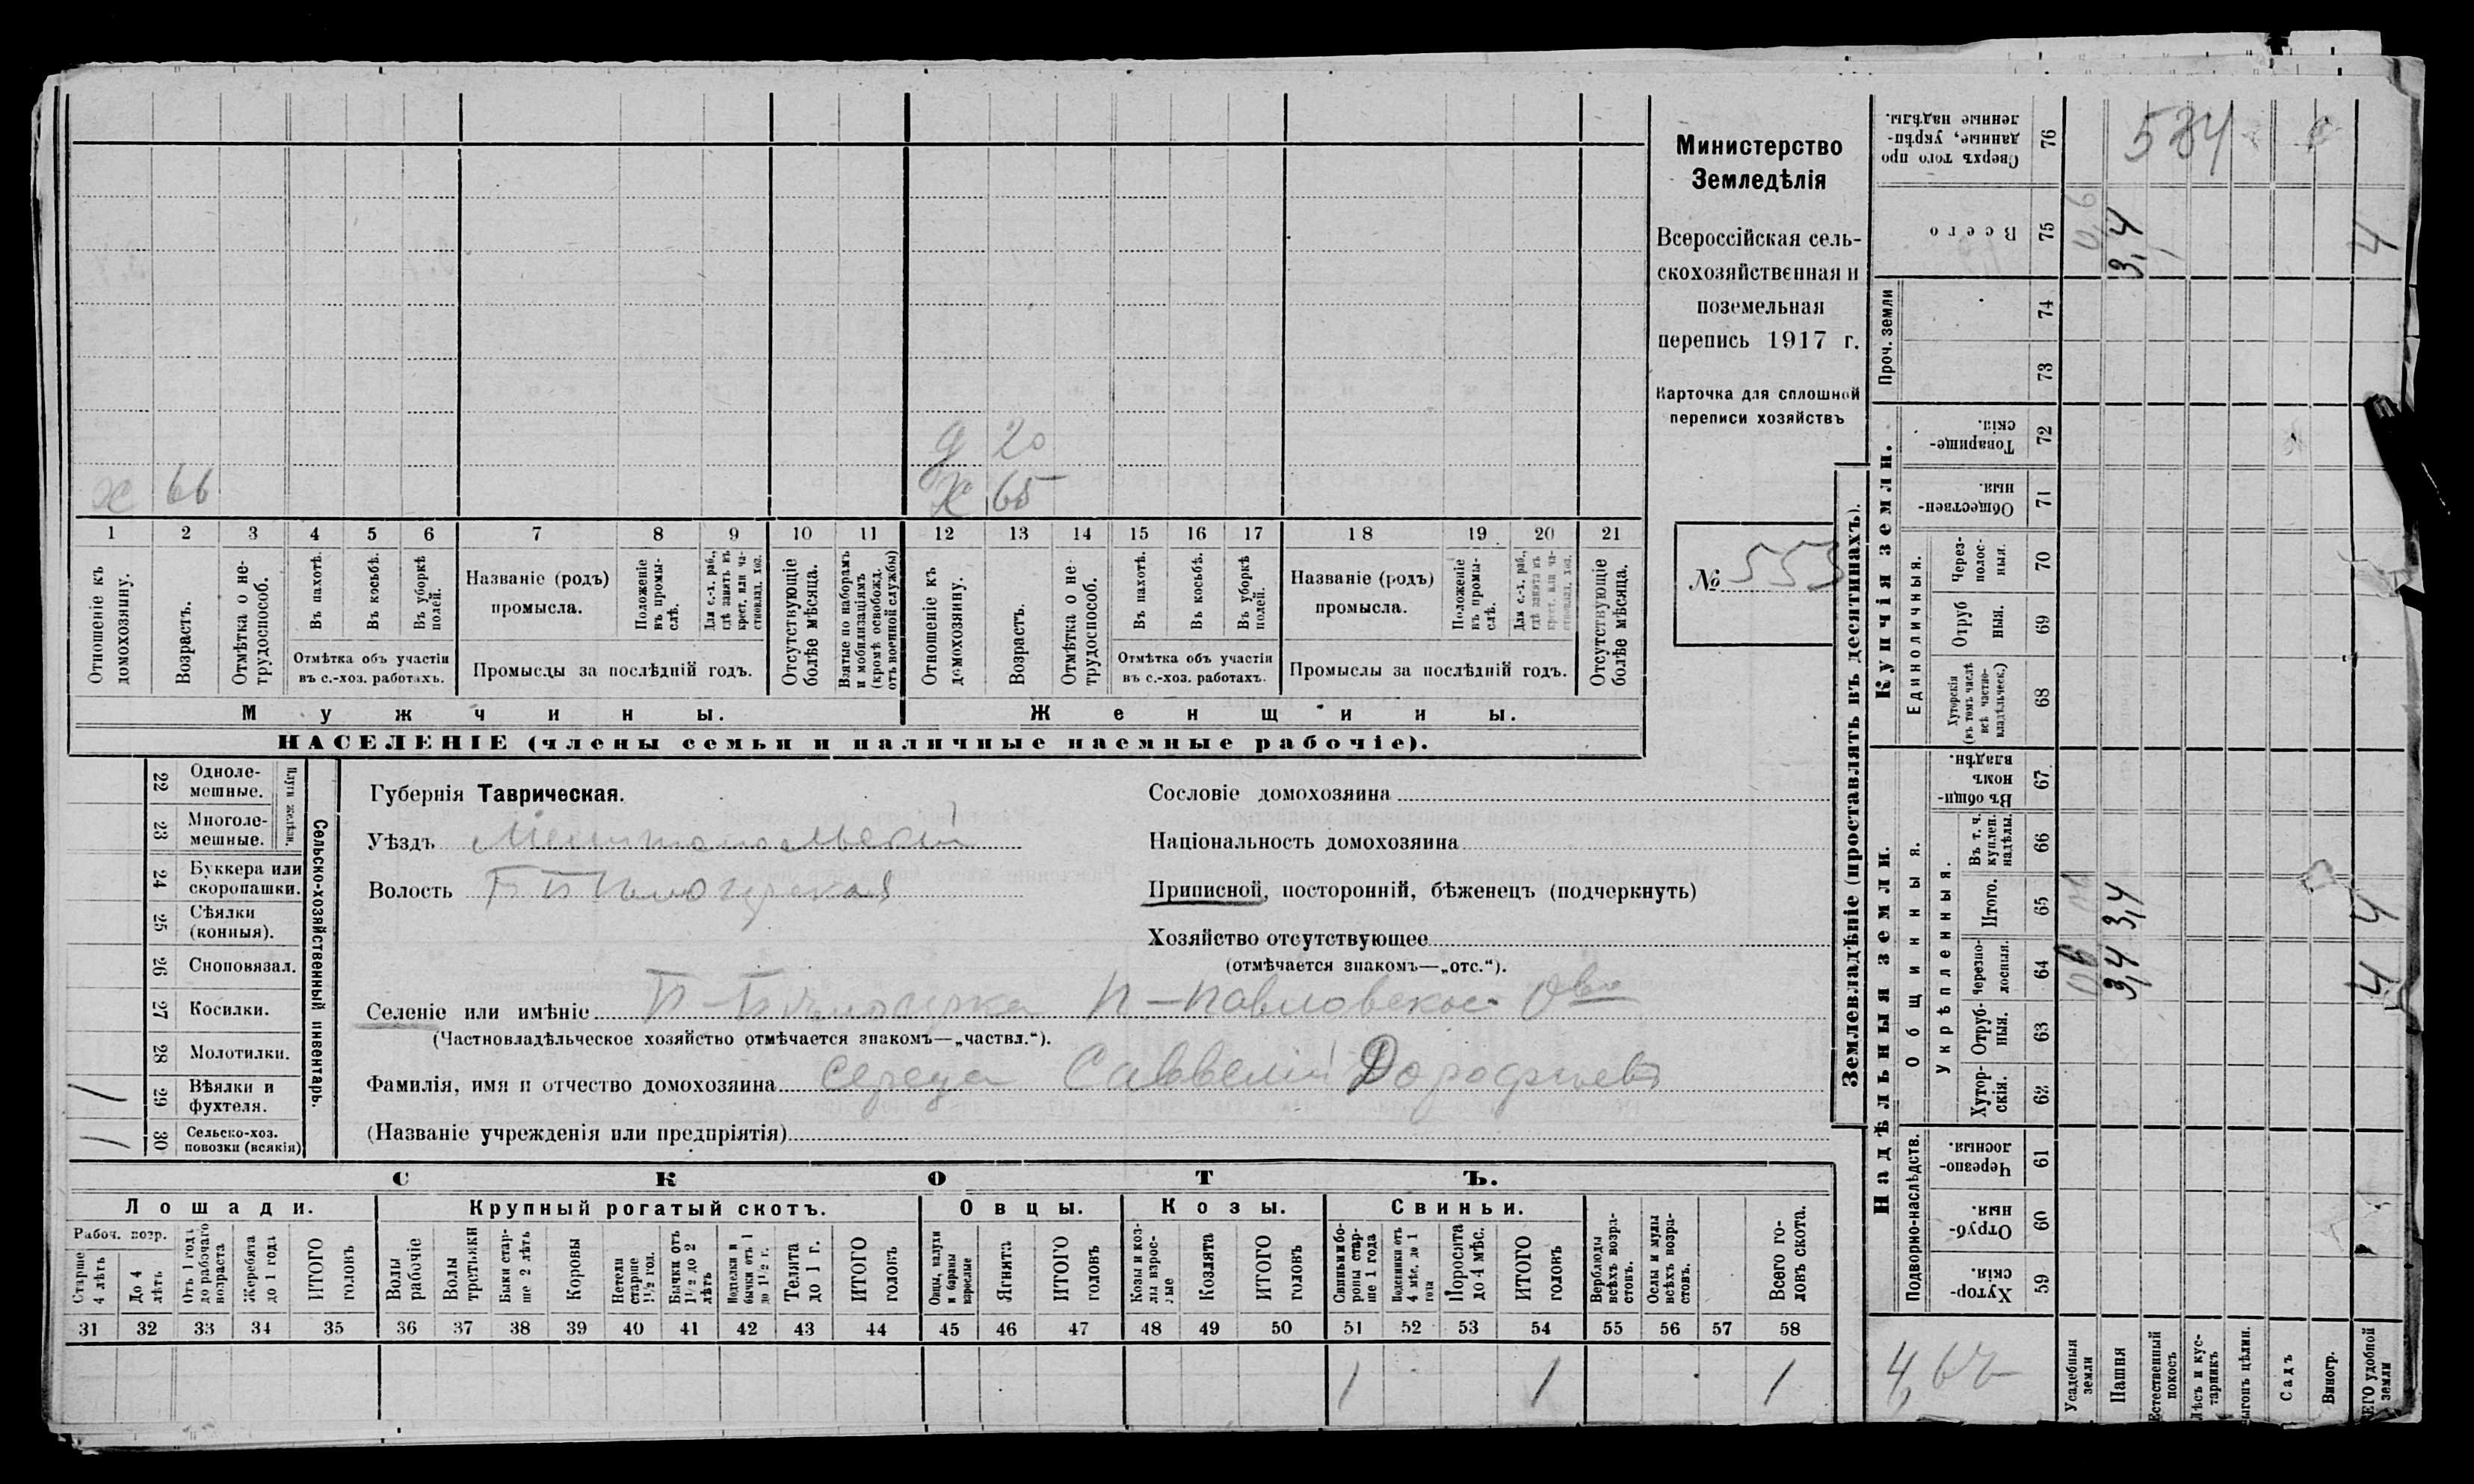 Министерство
Земледѣлія
Всероссійская сель-
скохозяйственная и
поземельная
перепись 1917 г.
Карточка для сплошной
переписи хозяйствъ
№ 553
х 66
д 20
х 65
1 2 3 4 5 6 7 8 9 10 11 12 13 14 15 16 17 18 19 20 21
Отношеніе къ домохозяину.
Возрастъ.
Отмѣтка о не-трудоспособ.
Въ пахотѣ.
Въ косьбѣ.
Въ уборкѣ полей.
Отмѣтка объ участіи
въ с.-хоз. работахъ.
Названіе (родъ)
промысла.
Положеніе въ промы-слѣ.
Для с.-х. раб., гдѣ занятъ въ крест. или ча-стновлад. хоз.
Промыслы за послѣдній годъ.
Отсутствующіе болѣе мѣсяца.
Взятые по наборамъ и мобилизаціямъ (кромѣ освобожд. отъ военной службы)
Отношеніе къ домохозяину.
Возрастъ.
Отмѣтка о не-трудоспособ.
Въ пахотѣ.
Въ косьбѣ.
Въ уборкѣ полей.
Отмѣтка объ участіи
въ с.-хоз. работахъ.
Названіе (родъ)
промысла.
Положеніе въ промы-слѣ.
Для с.-х. раб., гдѣ занята въ крест. или ча-стновлад. хоз.
Промыслы за послѣдній годъ.
Отсутствующіе болѣе мѣсяца.
Мужчины.
Женщины.
НАСЕЛЕНІЕ (члены семьи и наличные наемные рабочіе).
Сельско-хозяйственный инвентарь.
Плуги желѣзн.
22 Одноле-мешные.
23 Многоле-мешные.
24 Буккера или скоропашки.
25 Сѣялки (конныя).
26 Сноповязал.
27 Косилки.
28 Молотилки.
29 Вѣялки и фухтеля. 1
30 Сельско-хоз. повозки (всякія) 1
Губернія Таврическая.
Уѣздъ Мелитопольскій
Волость Б Бѣлозерская
Сословіе домохозяина
Національность домохозяина
Приписной, посторонній, бѣженецъ (подчеркнуть)
Хозяйство отсутствующее
(отмѣчается знакомъ—„отс.“).
Селеніе или имѣніе Б-Бѣлозерка П-Павловское О-во
(Частновладѣльческое хозяйство отмѣчается знакомъ—„частвл.“).
Фамилія, имя и отчество домохозяина Середа Саввелій Дорофѣевъ
(Названіе учрежденія или предпріятія)
СКОТЪ.
Лошади.
Крупный рогатый скотъ.
Овцы.
Козы.
Свиньи.
Рабоч. возр.
Старше 4 лѣтъ
До 4 лѣтъ
Отъ 1 года до рабочаго возраста
Жеребята до 1 года
ИТОГО головъ
Волы рабочіе
Волы третьяки
Быки стар-ше 2 лѣтъ
Коровы
Нетели старше 1½ год.
Бычки отъ 1½ до 2 лѣтъ
Нетелки и бычки отъ 1 до 1½ г.
Телята до 1 г.
ИТОГО головъ
Овцы, валухи и бараны взрослые
Ягнята
ИТОГО головъ
Козы и коз-лы взрос-лые
Козлята
ИТОГО головъ
Свиньи и бо-ровы стар-ше 1 года
Подсвинки отъ 4 мѣс. до 1 года
Поросята до 4 мѣс.
ИТОГО головъ
Верблюды всѣхъ возра-стовъ.
Ослы и мулы всѣхъ возра-стовъ.
Всего го-ловъ скота.
31 32 33 34 35 36 37 38 39 40 41 42 43 44 45 46 47 48 49 50 51 52 53 54 55 56 57 58
1 1 1
Землевладѣніе (проставлять въ десятинахъ).
Купчія земли.
Надѣльныя земли.
Проч. земли
Единоличныя.
Общинныя.
Укрѣпленныя.
Подворно-наслѣдств.
76 Сверхъ того про данные, укрѣп-ленные надѣлы. 584
75 Всего 0,6 3,4 4
74
73
72 Товарище-скія.
71 Обществен-ныя.
70 Чрез-полос-ныя.
69 Отруб ныя.
68 Хуторскія (въ томъ числѣ всѣ частно-владѣльческ.)
67 Въ общин-номъ владѣн.
66 Въ т. ч. куплен. надѣлы.
65 Итого. 3,4 4
64 Черезпо-лосныя. 0,6 3,4 4
63 Отруб-ныя.
62 Хутор-скія.
61 Черезпо-лосныя.
60 Отруб-ныя.
59 Хутор-скія.
4,62
Усадебныя земли
Пашня
Естественный покосъ
Лѣсъ и кус-тарникъ
ыгонъ цѣлин.
Садъ
Виногр.
ЕГО удобной земли